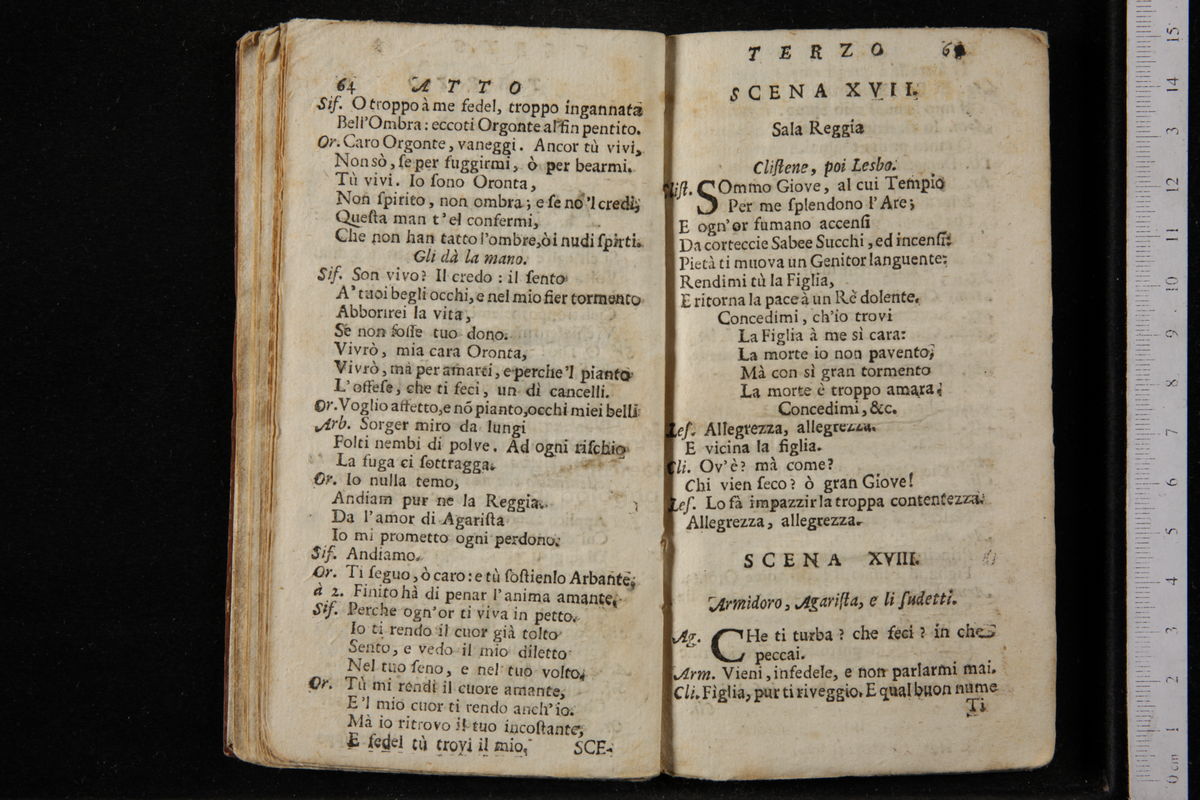 64 ATTO
Sif. O troppo à me fedel, troppo ingannata
Bell'Ombra: eccoti Orgonte al fin pentito.
Or. Caro Orgonte, vaneggi. Ancor tù vivi,
Non sò, se per fuggirmi, ò per bearmi.
Tù vivi. Io sono Oronta,
Non spirito, non ombra; e se nō 'l credi,
Questa man t'el confermi,
Che non han tatto l'ombre, ò i nudi spirti.
Gli dà la mano.
Sif. Son vivo? Il credo: il sento
A' tuoi begli occhi, e nel mio fier tormento
Abborirei la vita,
Se non fosse tuo dono.
Vivrò, mia cara Oronta,
Vivrò, mà per amarti, e perche 'l pianto
L'offese, che ti feci, un dì cancelli.
Or. Voglio affetto, e nō pianto, occhi miei belli
Arb. Sorger miro da lungi
Folti nembi di polve. Ad ogni rischio
La fuga ci sottragga.
Or. Io nulla temo,
Andiam pur ne la Reggia.
Da l'amor di Agarista
Io mi prometto ogni perdono.
Sif. Andiamo.
Or. Ti seguo, ò caro: e tù sostienlo Arbante;
à 2. Finito hà di penar l'anima amante.
Sif. Perche ogn'or ti viva in petto
Io ti rendo il cuor già tolto
Sento, e vedo il mio diletto
Nel tuo seno, e nel tuo volto.
Or. Tù mi rendi il cuore amante,
E 'l mio cuor ti rendo anch'io.
Mà io ritrovo il tuo incostante,
E fedel tù trovi il mio.
SCE-
TERZO 6
SCENA XVII.
Sala Reggia
Clistene, poi Lesbo.
list. SOmmo Giove, al cui Tempio
Per me splendono l'Are;
E ogn'or fumano accensi
Da corteccie Sabee Succhi, ed incensi:
Pietà ti muova un Genitor languente;
Rendimi tù la Figlia,
E ritorna la pace à un Rè dolente.
Concedimi, ch'io trovi
La Figlia à me sì cara:
La morte io non pavento;
Mà con sì gran tormento
La morte è troppo amara;
Concedimi, &c.
Les. Allegrezza, allegrezza.
E vicina la figlia.
Cli. Ov'è? mà come?
Chi vien seco? ò gran Giove!
Les. Lo fà impazzir la troppa contentezza.
Allegrezza, allegrezza.
SCENA XVIII.
Armidoro, Agarista, e li sudetti.
Ag. CHe ti turba? che feci? in che
peccai.
Arm. Vieni, infedele, e non parlarmi mai.
Cli. Figlia, pur ti riveggio. E qual buon nume
Ti